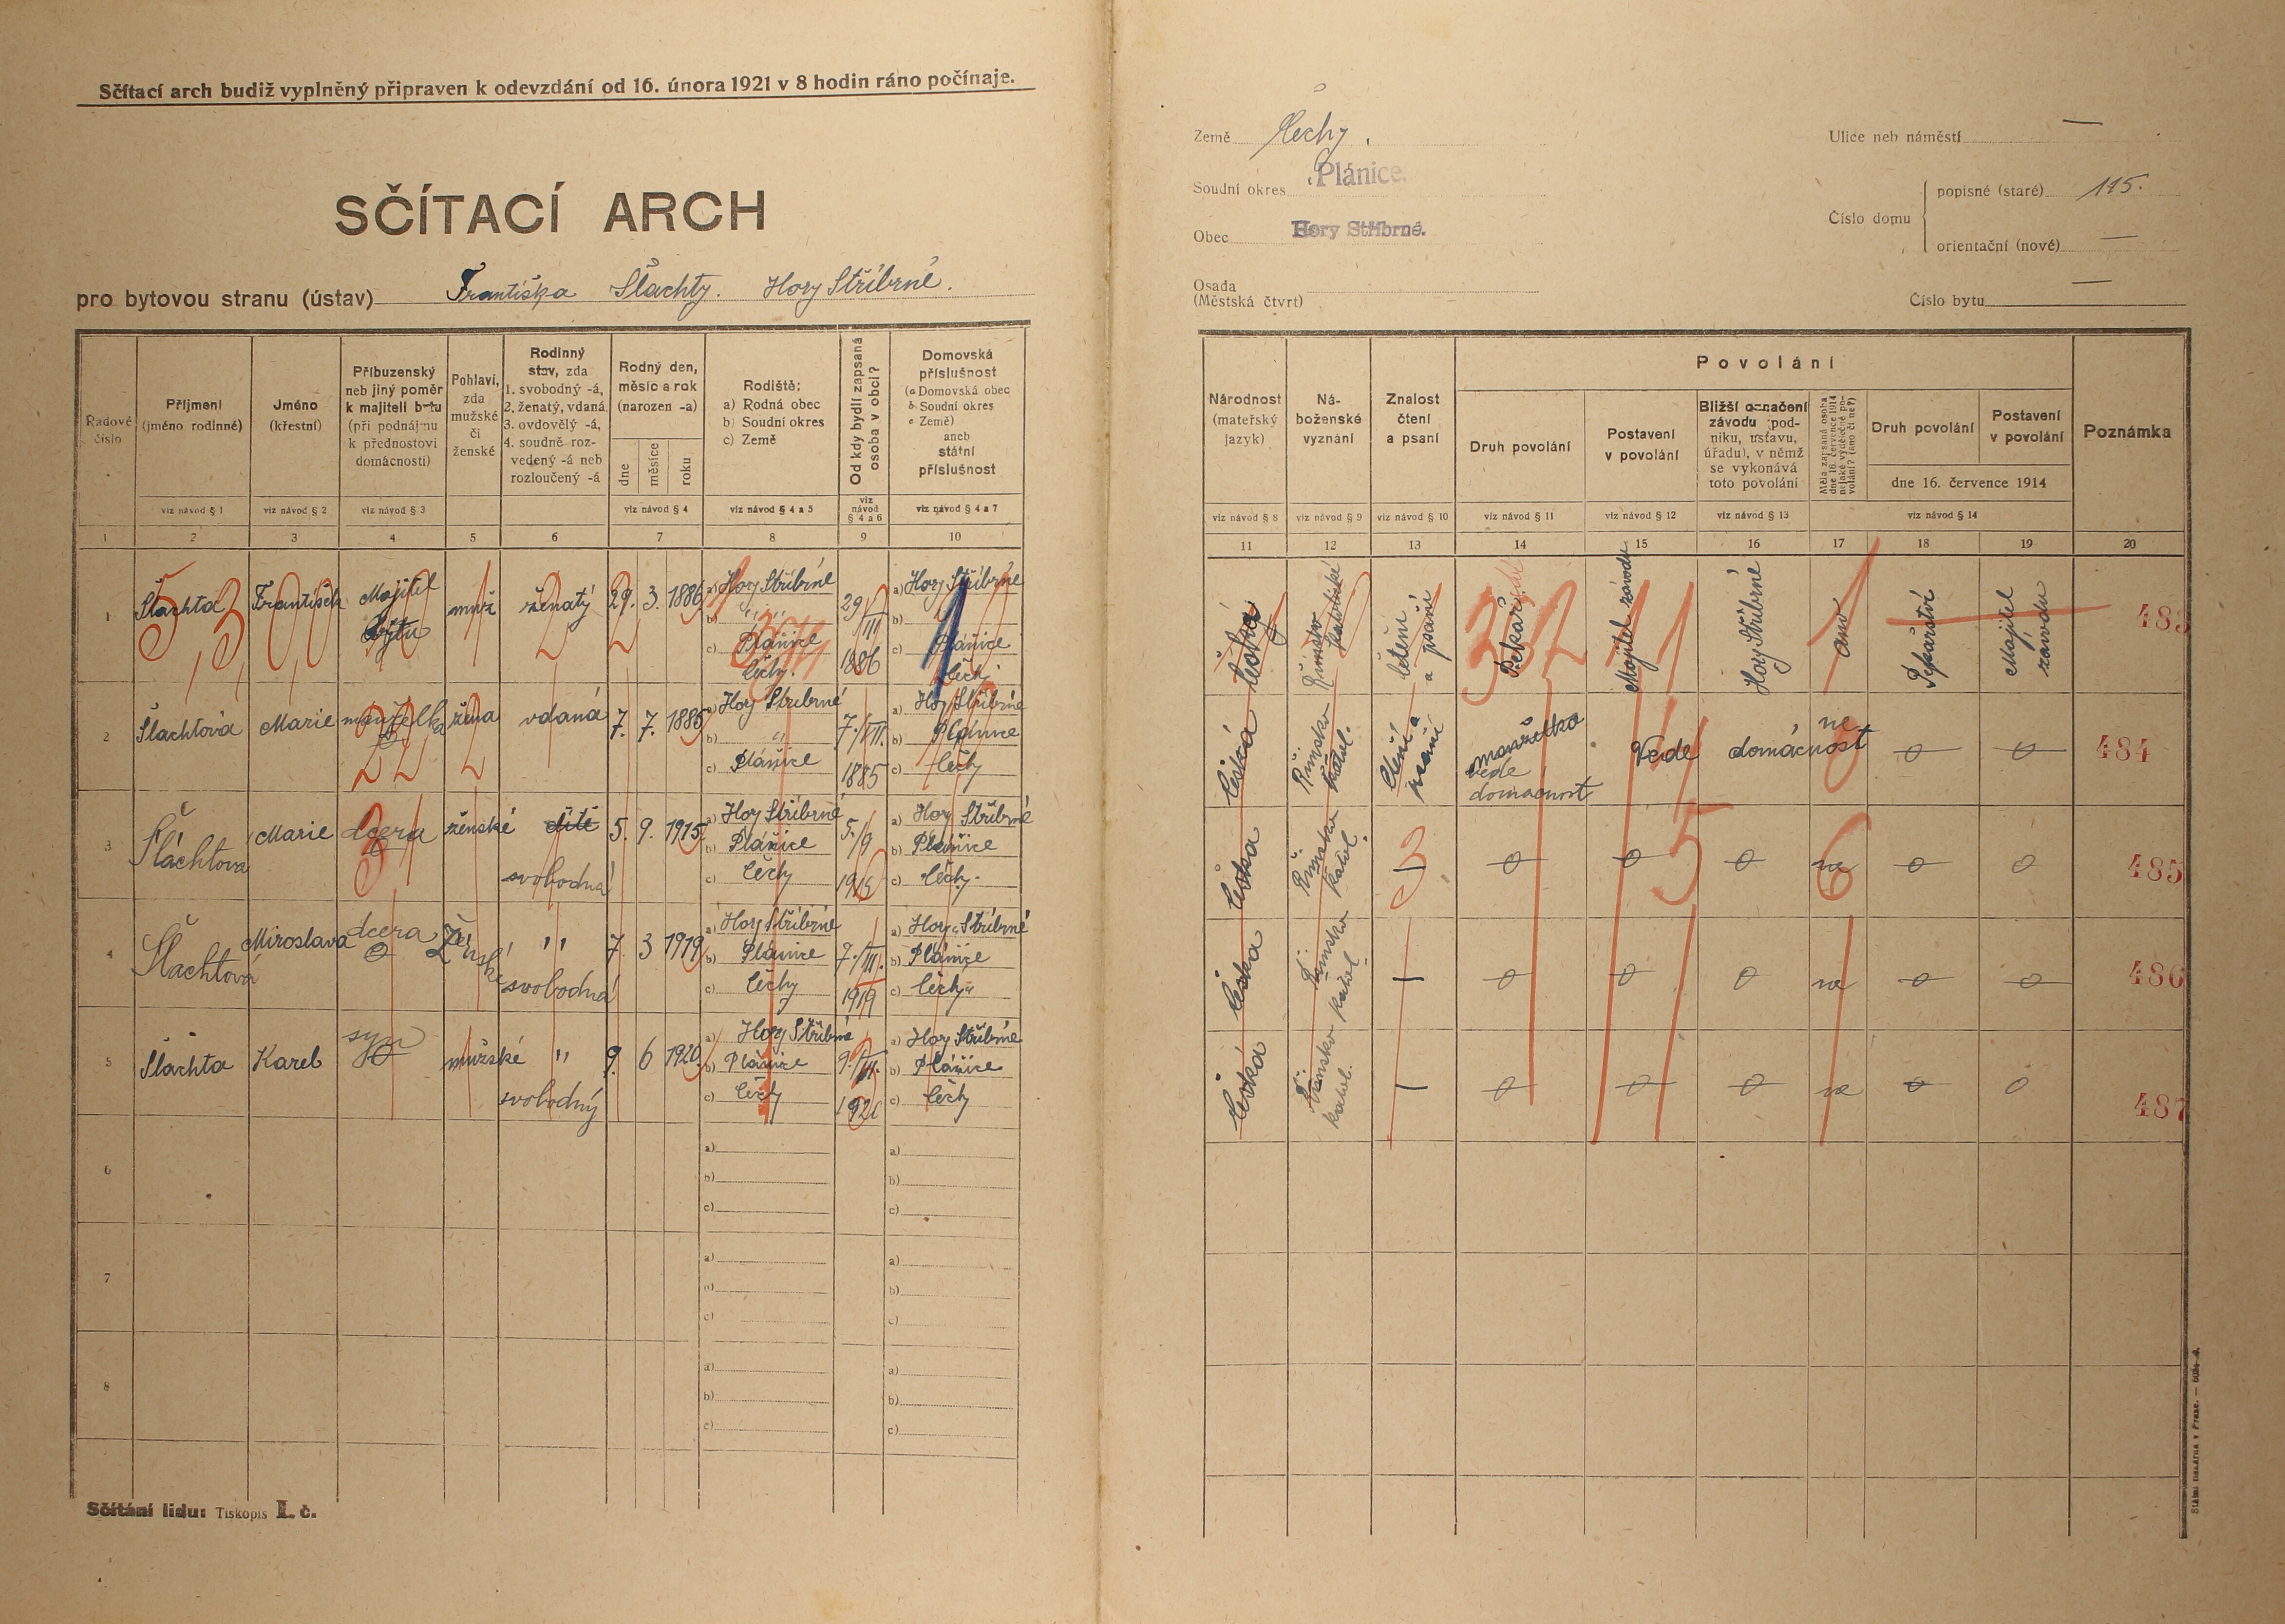 Sčítací arch budiž vyplněný připraven k odevzdání od 16. února 1921 v 8 hodin ráno počínaje.
SČÍTACÍ ARCH
pro bytovou stranu (ústav) Františka Šlachty. Hory Stříbrné.
Země Čechy.
Soudní okres Plánice.
Obec Hory Stříbrné.
Osada
(Městská čtvrť)
Ulice neb náměstí —
Číslo domu
popisné (staré) 115.
orientační (nové) —
Číslo bytu —
Řadové číslo
Příjmení (jméno rodinné)
Jméno (křestní)
Příbuzenský neb jiný poměr k majiteli bytu (při podnájmu k přednostovi domácnosti)
Pohlaví, zda mužské či ženské
Rodinný stav, zda
1. svobodný -á,
2. ženatý, vdaná
3. ovdovělý -á,
4. soudně rozvedený -á neb rozloučený -á
Rodný den, měsíc a rok (narozen -a)
dne
měsíce
roku
Rodiště:
a) Rodná obec
b) Soudní okres
c) Země
Od kdy bydlí zapsaná osoba v obci?
Domovská příslušnost
(a Domovská obec
b Soudní okres
c Země)
aneb státní příslušnost
viz návod § 1
viz návod § 2
viz návod § 3
viz návod § 4
viz návod § 4 a 5
viz návod § 4 a 6
viz návod § 4 a 7
1 2 3 4 5 6 7 8 9 10
Národnost (mateřský jazyk)
Náboženské vyznání
Znalost čtení a psaní
Povolání
Druh povolání
Postavení v povolání
Bližší označení závodu (podniku, ústavu, úřadu), v němž se vykonává toto povolání
Měla zapsaná osoba dne 16. července 1914 nějaké výdělečné povolání? (ano či ne?)
Druh povolání
Postavení v povolání
dne 16. července 1914
Poznámka
viz návod § 8
viz návod § 9
viz návod § 10
viz návod § 11
viz návod § 12
viz návod § 13
viz návod § 14
11 12 13 14 15 16 17 18 19 20
1 Šlachta František Majitel bytu muž ženatý 29. 3. 1886 a) Hory Stříbrné b) " " c) Plánice Čechy. 29/III 1886 a) Hory Stříbrné b) c) Plánice Čechy
česká Římsko katolické čtení a psaní Pekář Majitel závodu Hory Stříbrné ano Pekařství Majitel závodu 483
2 Šlachtová Marie manželka žena vdaná 7. 7. 1885 a) Hory Stříbrné b) " c) Plánice 7./VII. 1885 a) Hory Stříbrné b) Plánice c) Čechy
česká Římsko katol. čtení a psaní manželka vede domácnost Vede domácnost ne 0 0 484
3 Šlachtová Marie dcera ženské dítě svobodná 5. 9. 1915 a) Hory Stříbrné b) Plánice c) Čechy 5./9 1915 a) Hory Stříbrné b) Plánice c) Čechy.
česká Římsko katol. — 0 0 0 ne 0 0 485
4 Šlachtová Miroslava dcera Ženské " svobodná 7. 3 1919 a) Hory Stříbrné b) Plánice c) Čechy 7./III. 1919 a) Hory Stříbrné b) Plánice c) Čechy
česká Římsko katol. — 0 0 0 ne 0 0 486
5 Šlachta Karel syn mužské " svobodný 9. 6 1920 a) Hory Stříbrné b) Plánice c) Čechy 1920 a) Hory Stříbrné b) Plánice c) Čechy
česká Římsko katol. — 0 0 0 ne 0 0 487
6 a) b) c) a) b) c)
7 a) b) c) a) b) c)
8 a) b) c) a) b) c)
Sčítání lidu: Tiskopis I. č.
Státní tiskárna v Praze.